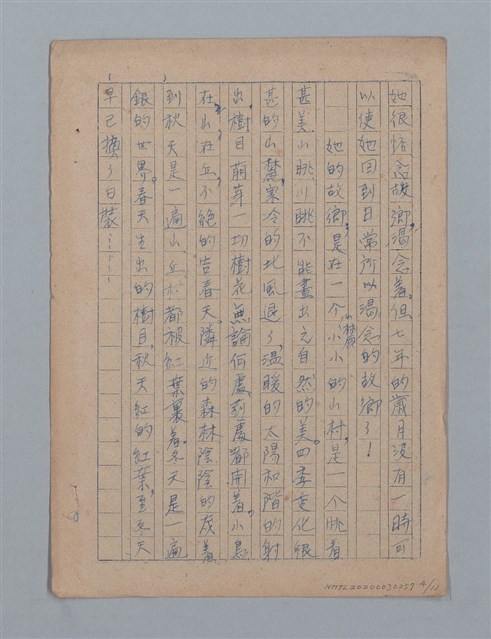 她很惦念故鄉，渴念着。但七年的歲月没有一時可
以使她回到日常所以渴念的故鄉了！
她的故鄉，是在一个小小的山村，是一个眺着
甚美山眺川眺不能畫出之自然的美。四季变化很
甚的山麓，寒冷的北風退了，温暖的太陽和階的射
出，樹目萠芽一切樹花無論何處到處都開着。小息
在山在丘，不絶的告春天。隣近的森林陰陰的灰着
到秋天是一遍山丘都被紅葉裏着。冬天是一遍
銀的世界。春天生出的樹目，秋天紅的紅葉，至冬天
早已換了白裝……
NMTL20200030257 4/12